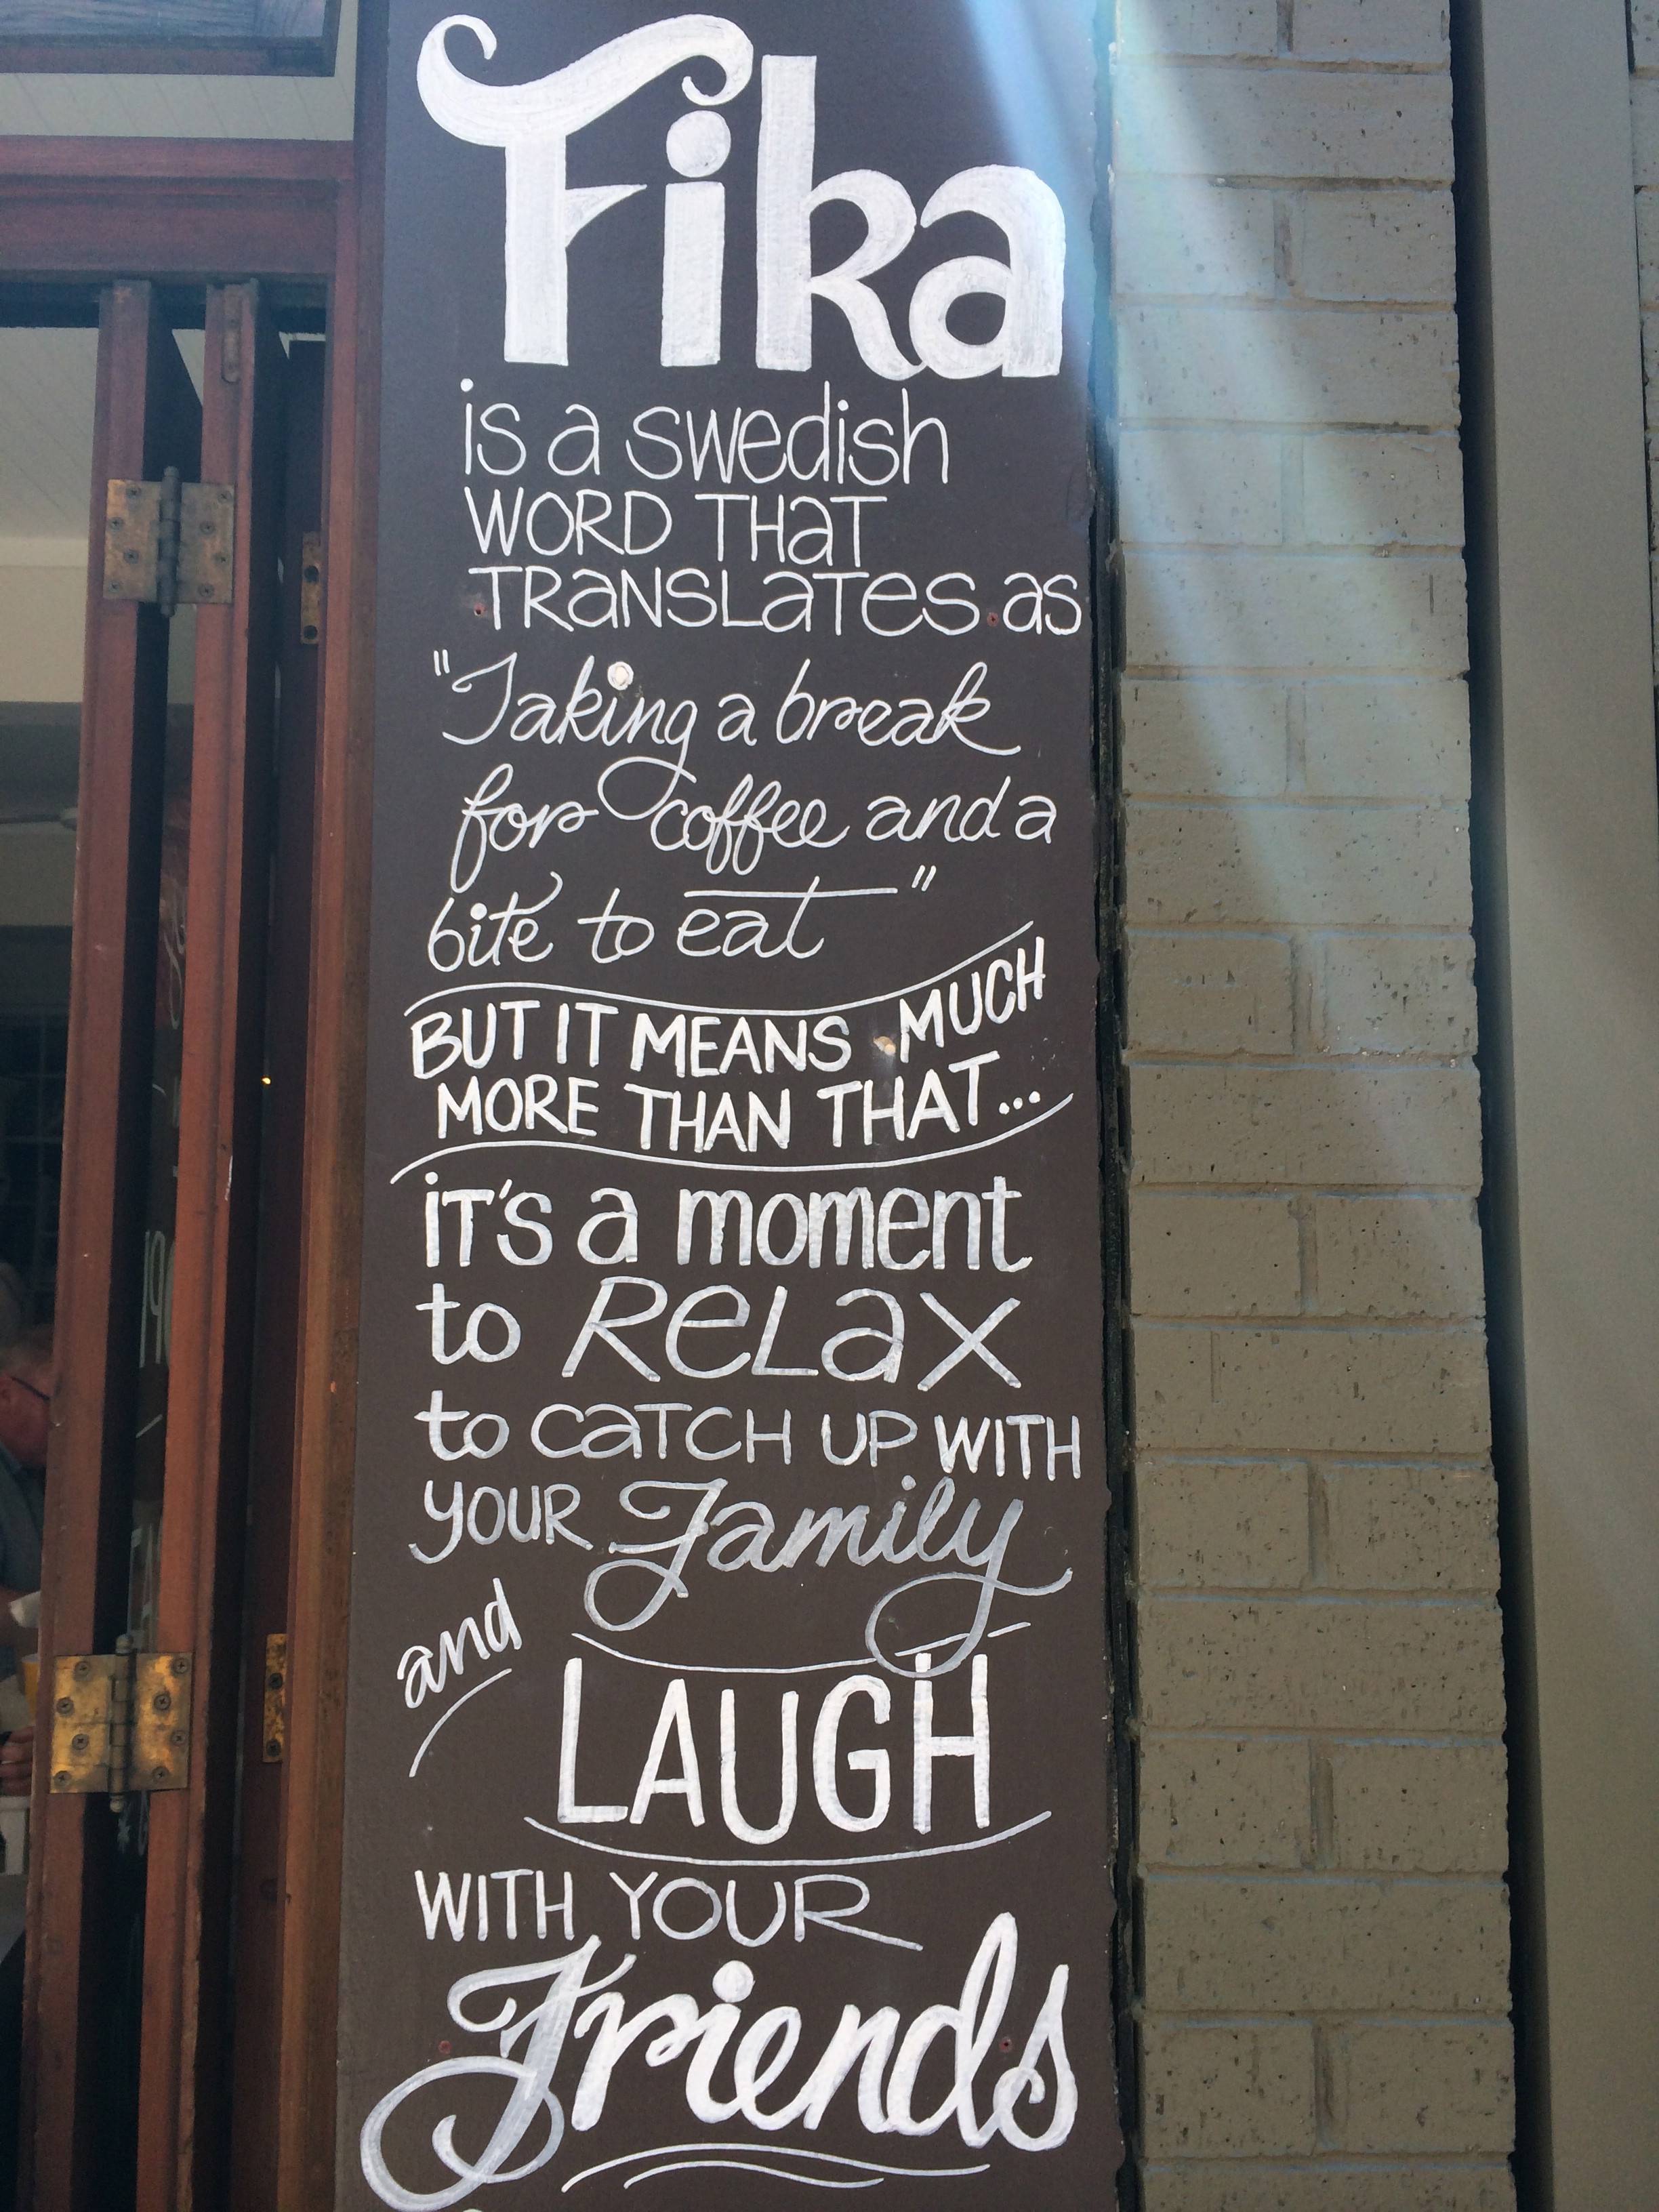 Fika
is a swedish
WORD THaT
TRaNSLaTes as
"Taking a break
for coffee and a
bite to eat"
BUT IT MEANS MUCH
MORE THAN THAT...
iT's a moment
to ReLax
to CaTCH UP WITH
YOUR Family
and
LAUGH
WITH YOUR
Friends